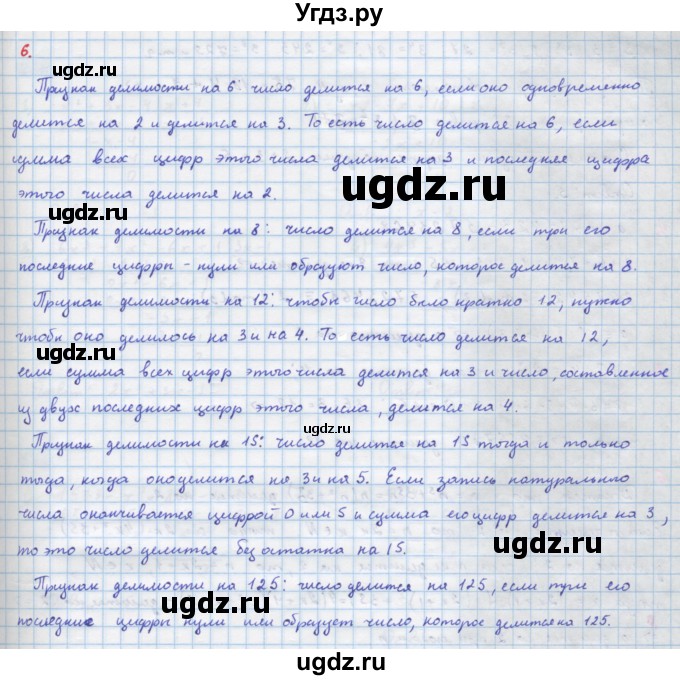 Угдз.ру
6.
ugdz.ru
Признак делимости на 6: число делится на 6, если оно одновременно
ugdz.ru
делится на 2 и делится на 3. То есть число делится на 6, если
сумма всех цифр этого числа делится на 3 и последняя цифра
этого числа делится на 2.
ugdz.ru
Признак делимости на 8: число делится на 8, если три его
последние цифры - нули или образуют число, которое делится на 8.
Признак делимости на 12: чтобы число было кратно 12, нужно
ugdz.ru
чтобы оно делилось на 3 и на 4. То есть число делится на 12,
если сумма всех цифр этого числа делится на 3 и число, составленное
из двух последних цифр этого числа, делится на 4.
ugdz.ru
Признак делимости на 15: число делится на 15 тогда и только
тогда, когда оно делится на 3 и на 5. Если запись натурально
числа оканчивается цифрой 0 или 5 и сумма его цифр делится на 3,
ugdz.ru
то это число делится без остатка на 15.
Признак делимости на 125: число делится на 125, если три его
ugdz.ru
последние цифры нули или образует число, которое делится на 125.
ugdz.ru